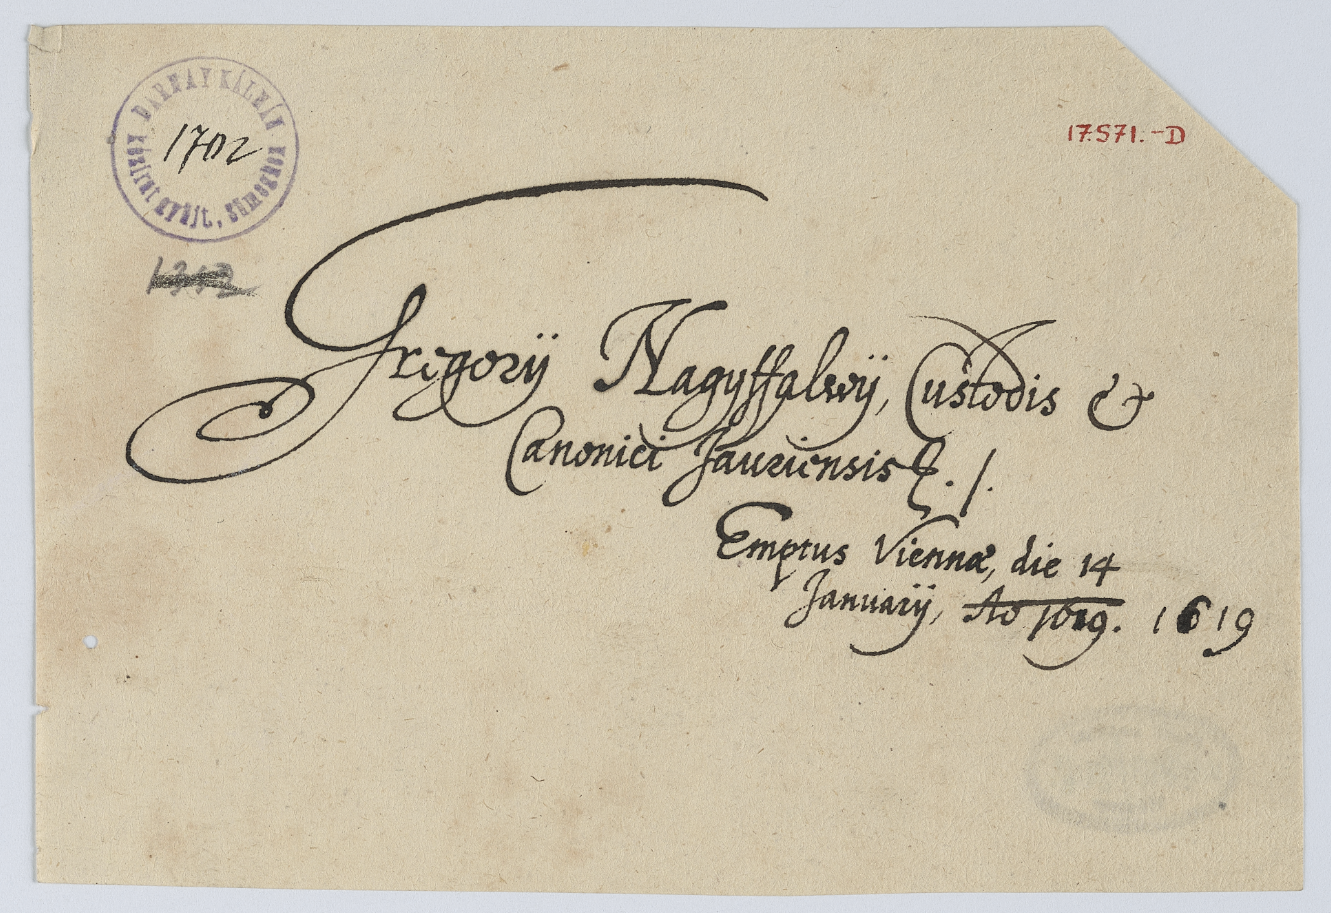 DARNAY KÁLMÁN
kézirat gyüjt. Sümeghen
1702
17.571.-D
Gregorij Nagyffalwij, Custodis &
Canonici Jauriensis &. /.
Emptus Viennæ, die 14
Januarij, Ao 1619. 1619